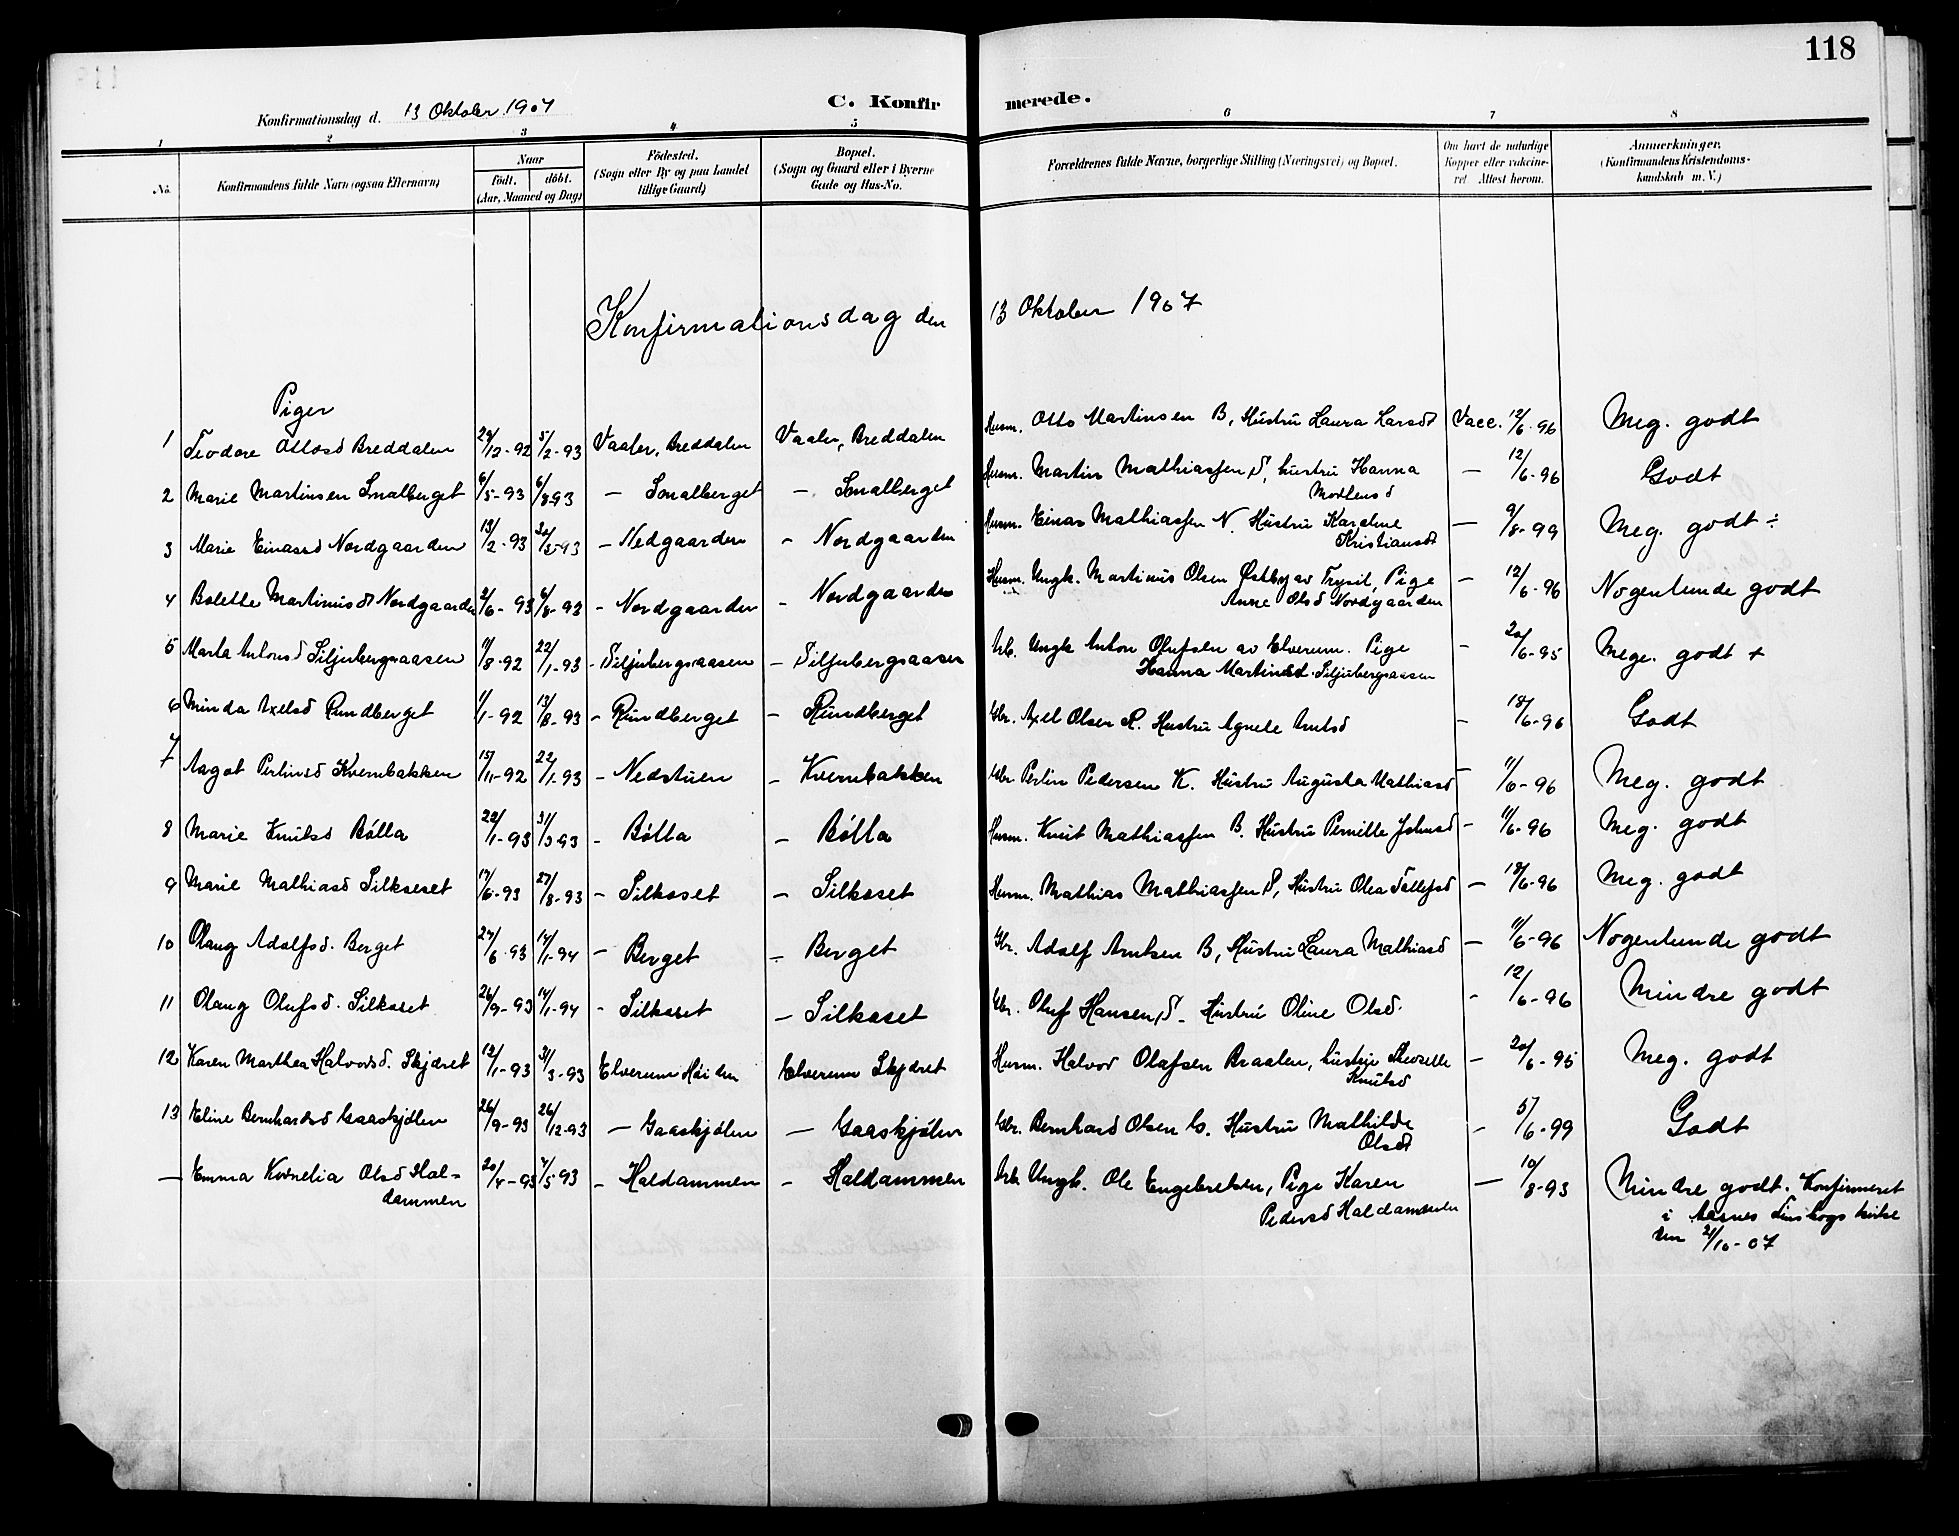 118
Konfirmationsdag d. 13 Oktober 1907
C. Konfirmerede.
1 2 3 4 5 6 7 8
No. Konfirmandens fulde Navn (ogsaa Efternavn) Naar födt. döbt. (Aar, Maaned og Dag) Födested. (Sogn eller By og paa Landet tillige Gaard) Bopæl. (Sogn og Gaard eller i Byerne Gade og Hus-No. Forældrenes fulde Navne, borgerlige Stilling (Næringsvei) og Bopæl. Om havt de naturlige Kopper eller vaccineret Attest herom. Anmerkninger. (Konfirmandens Kristendomskundskab m. V.)
Konfirmationsdag den 13 Oktober 1907
Piger
1 Teodore Ottosd Breddalen 29/12-92 5/2-93 Vaaler, Breddalen Vaaler, Breddalen Husm. Otto Martinsen B, Hustru Laura Larsdt Vacc. 12/6-96 Meg. godt
2 Marie Martinsen Smalberget 6/5-93 6/8-93 - Smalberget - Smalberget Husm. Martin Mathiassen S, hustru Hanna Mortensd - 12/6-96 Godt
3 Marie Einarsd Nordgaarden 13/2-93 - Nedgaarden - Nordgaarden Husm. Einar Mathiassen N. Hustru Karoline Kristiansdt - 9/8-99 Meg. godt ÷
4 Bolette Martinusdt Nordgaarden 2/6-93 6/8-93 - Nordgaarden - Nordgaarden Husm. Ungk. Martinus Olsen Østby av Trysil, Pige Anne Olsd Nordgaarden - 12/6-96 Nogenlunde godt
5 Marta Antonsd Siljubergsaasen 11/8-92 22/1-93 - Siljubergsaasen - Siljubergsaasen Arb. Ungk Anton Olufsen av Elverum. Pige Hanna Martinsd Siljubergsaasen - 20/6-95 Mege. godt +
6 Minda Axelsd Rundberget 1/1-92 13/8-93 - Rundberget - Rundberget Gbr. Axel Olsen R. Hustru Agnete Arntsd - 18/6-96 Godt
7 Aagot Perlinsd Kvernbakken 15/11-92 22/1-93 - Nedstuen - Kvernbakken Gbr Perlin Pedersen K. Hustru Augusta Mathiasd - 11/6-96 Meg. godt
8 Marie Knutsd Bölla 22/1-93 31/3-93 - Bölla - Bölla Husm. Knut Mathiassen B. Hustru Pernille Johnsd - 11/6-96 Meg. godt
9 Marie Mathiasd Silkeset 17/6-93 27/8-93 - Silkaset - Silkaset Husm. Mathias Mathiassen S, Hustru Olea Tollefsd - 12/6-96 Meg. godt
10 Olaug Adolfsd. Berget 27/6-93 14/1-94 - Berget - Berget Gbr. Adolf Arntsen B, Hustru Laura Mathiasd - 11/6-96 Nogenlunde godt
11 Olaug Olufsd. Silkaset 26/9-93 14/1-94 - Silkaset - Silkaset Gbr. Oluf Hansen, S - Hustru Oline Olsd. - 12/6-96 Mindre godt
12 Karen Marthea Halvorsd. Skjæret 12/1-93 31/3-93 Elverum Heiden Elverum Skjæret Husm. Halvor Olafsen Braaten, hustru Knutsd - 20/6-95 Meg. godt
13 Eline Bernhardsd Gaaskjølen 26/9-93 26/12-93 - Gaaskjølen - Gaaskjølen Gbr. Bernhard Olsen G. Hustru Mathilde Olsdt - 5/6-99 Godt
- Emma Kornelia Olsd Haldammen 20/4-93 7/5-93 - Haldammen - Haldammen Arb. Ungk. Ole Engebretsen, Pige Karen Pedersd Haldammen - 10/8-93 Mindre godt. Konfirmeret
i Aasnes Finskogs kirke
den 21/10-07